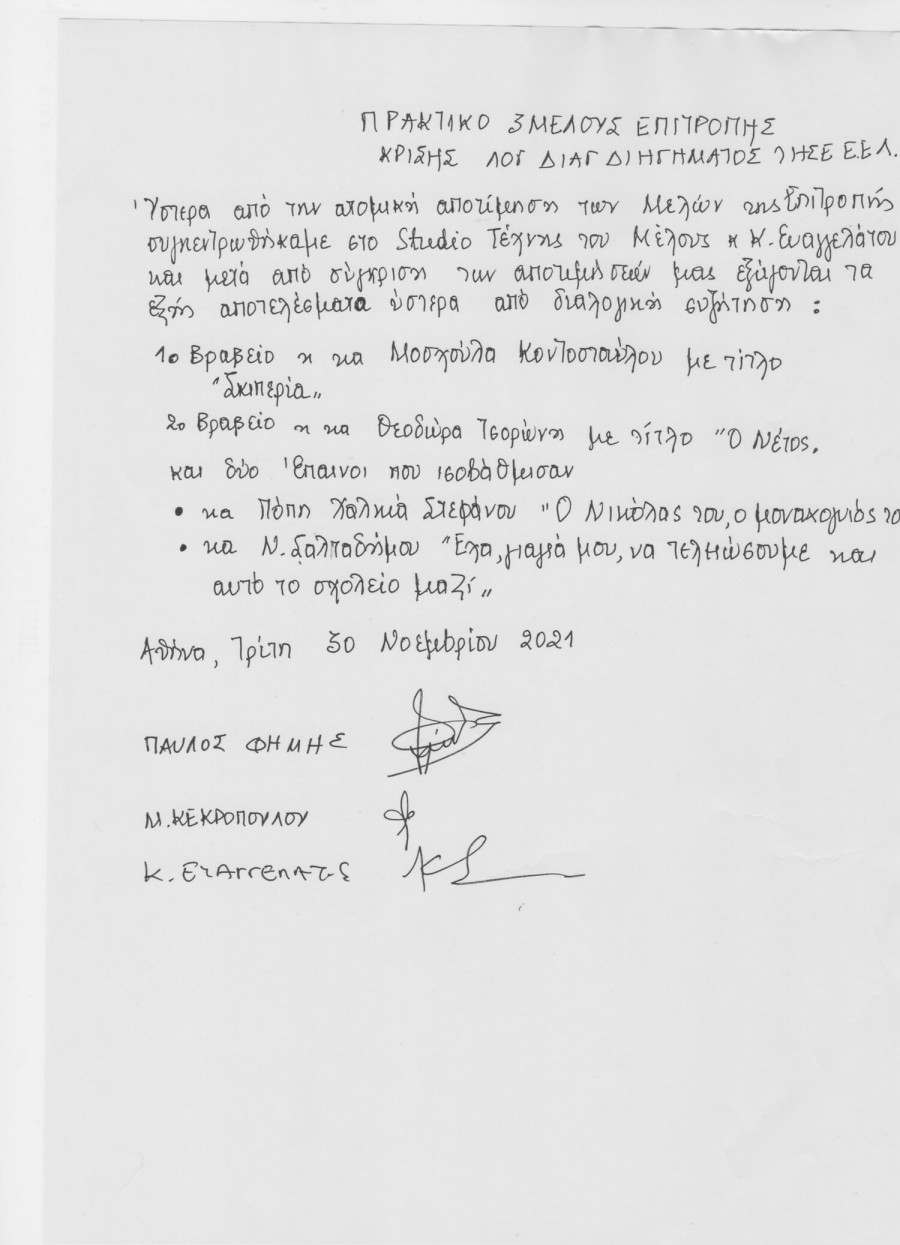 ΠΡΑΚΤΙΚΟ 3ΜΕΛΟΥΣ ΕΠΙΤΡΟΠΗΣ
ΚΡΙΣΗΣ ΛΟΓ ΔΙΑΓ ΔΙΗΓΗΜΑΤΟΣ ΤΗΣΕ Ε.Ε.Λ.
Ύστερα από την ατομική αποτίμηση των Μελών της Επιτροπής
συγκεντρωθήκαμε στο Studio Τέχνης του Μέλους κ Κ. Ευαγγελάτου
και μετά από σύγκριση των αποτιμήσεών μας εξάγονται τα
εξής αποτελέσματα ύστερα από διαλογική συζήτηση :
1ο Βραβείο η κα Μοσχούλα Κοντοσταύλου με τίτλο
"Σκιπερία„
2ο Βραβείο η κα Θεοδώρα Τσορώνη με τίτλο "Ο Νέτος.
και δύο Έπαινοι που ισοβάθμισαν
• κα Πόπη Χαλκιά Στεφάνου "Ο Νικόλας του, ο μοναχογιός το
• κα Ν. Σαλπαδήμου "Έλα, γιαγιά μου, να τελειώσουμε και
αυτό το σχολείο μαζί„
Αθήνα, Τρίτη 30 Νοεμβρίου 2021
ΠΑΥΛΟΣ ΦΗΜΗΣ
Μ. ΚΕΚΡΟΠΟΥΛΟΥ
Κ. ΕΥΑΓΓΕΛΑΤΟΣ